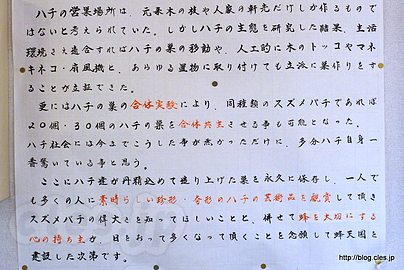 ハチの営巣場所は、元来木の枝や人家の軒先だけしか作るもので
はないと考えられていた。しかしハチの生態を研究した結果、生活
環境さえ適合すればハチの巣の移動や、人工的に木のトッコやマネ
キネコ・扇風機と、あらゆる置物に取り付けても立派に巣作りをす
ることが立証できた。
更にはハチの巣の合体実験により、同種類のスズメバチであれば
20個・30個のハチの巣を合体共生させる事も可能となった。
ハチ社会には今までこうした事が無かっただけに、多分ハチ自身一
番驚いている事と思う。
ここにハチ達が丹精込めて造り上げた巣を永久に保存し、一人で
も多くの人に素晴らしい珍形・奇形のハチの芸術品を観賞して頂き
スズメバチの偉大さを知ってほしいことと、併せて蜂を大切にする
心の持ち主が、日をおって多くなって頂くことを念願して蜂天国を
建設した次第です。
http://blog.cles.jp